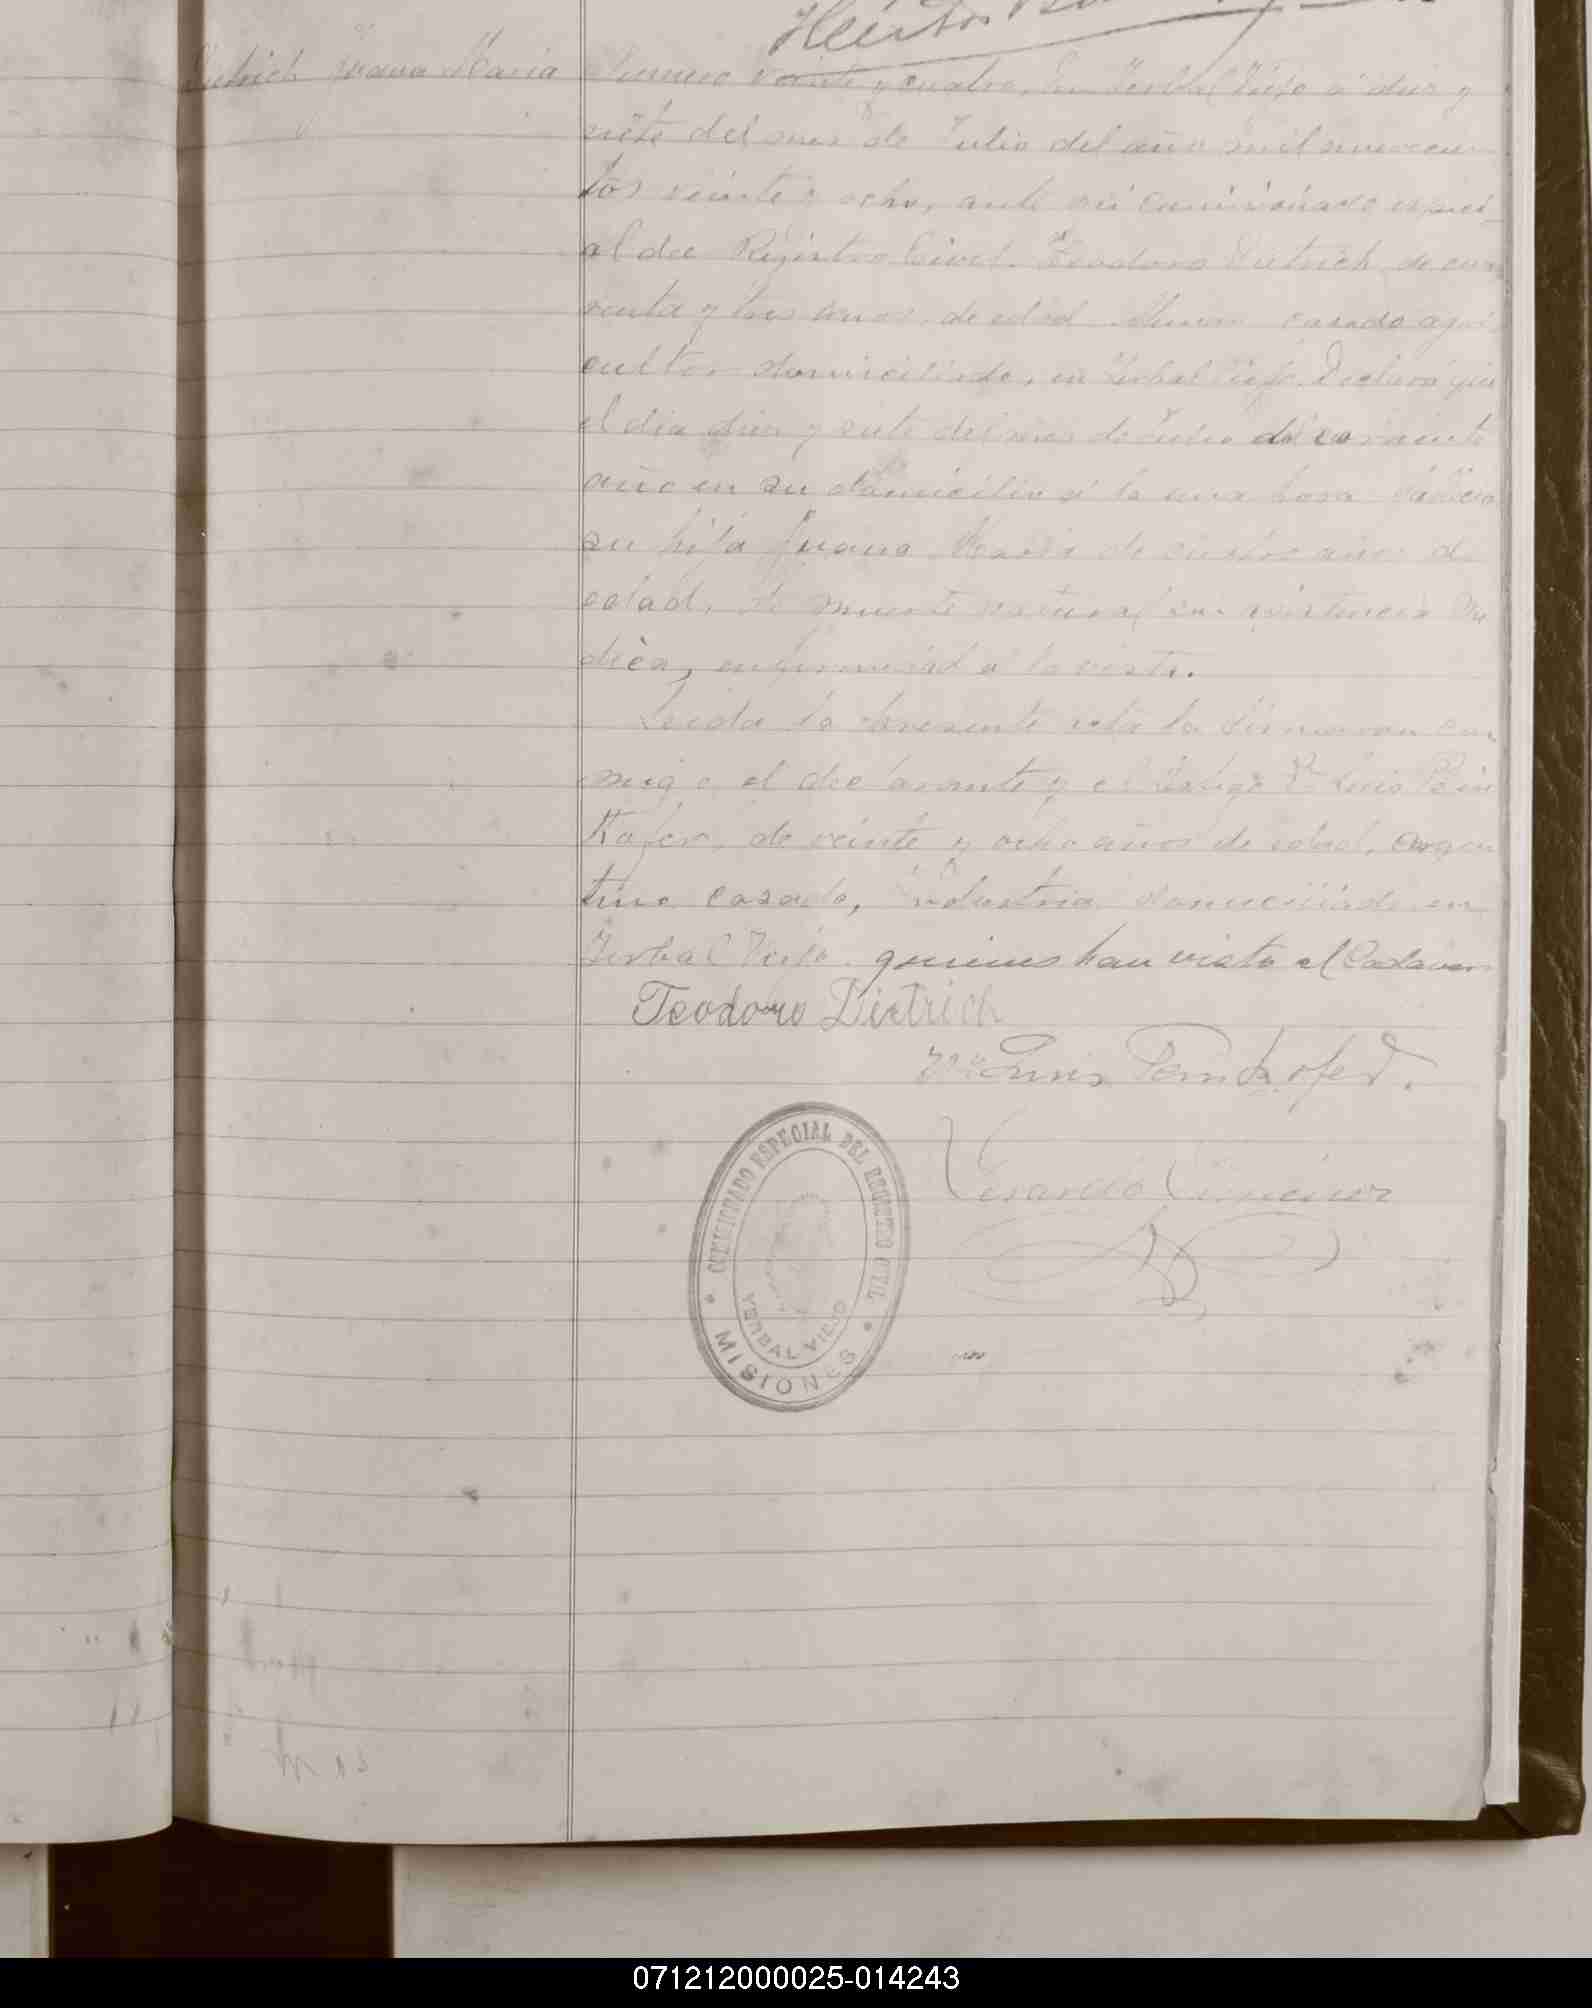 Dietrich Juana Maria
Numero veinte y cuatro, En Yerbal Viejo á dies y
siete del mes de Julio del año mil novecien
tos veinte y ocho, ante mi Comisionado especi
al del Registro Civil. Teodoro Dietrich de cua
renta y tres años, de edad Aleman casado agri
cultor domiciliado, en Yerbal Viejo. Declaró que
el dia dies y siete del mes de Julio del corriente
año en su domicilio á la una hora falleció
su hija Juana Maria de cuatro años de
edad, de muerte natural sin asistencia me
dica, enfermedad á la vista.
Leida la presente acta la firmaron con
migo el declarante y el testigo Dn Luis Pein
Kofer, de veinte y ocho años de edad, argen
tino casado, industria domiciliado en
Yerbal Viejo. quienes han visto el Cadaver
Teodoro Dietrich
Luis
COMISIONADO ESPECIAL DEL REGISTRO CIVIL
YERBAL VIEJO
* MISIONES *
071212000025-014243